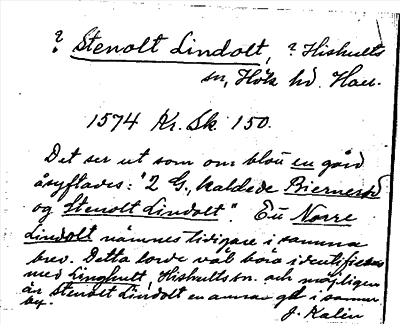 ? Stenolt Lindolt, ? Hishults
sn, Höks hd. Hall.
1574 Kr. Sk. 150.
Det ser ut som om blott en gård
åsyftades: "2 G., kaldede Biernerød
og Stenolt Lindolt". Ett Norre
Lindolt nämnes tidigare i samma
brev. Detta torde väl böra identifieras
med Linghult, Hishults sn. och möjligen
är Stenolt Lindolt en annan gd i samma
by. J. Kalén